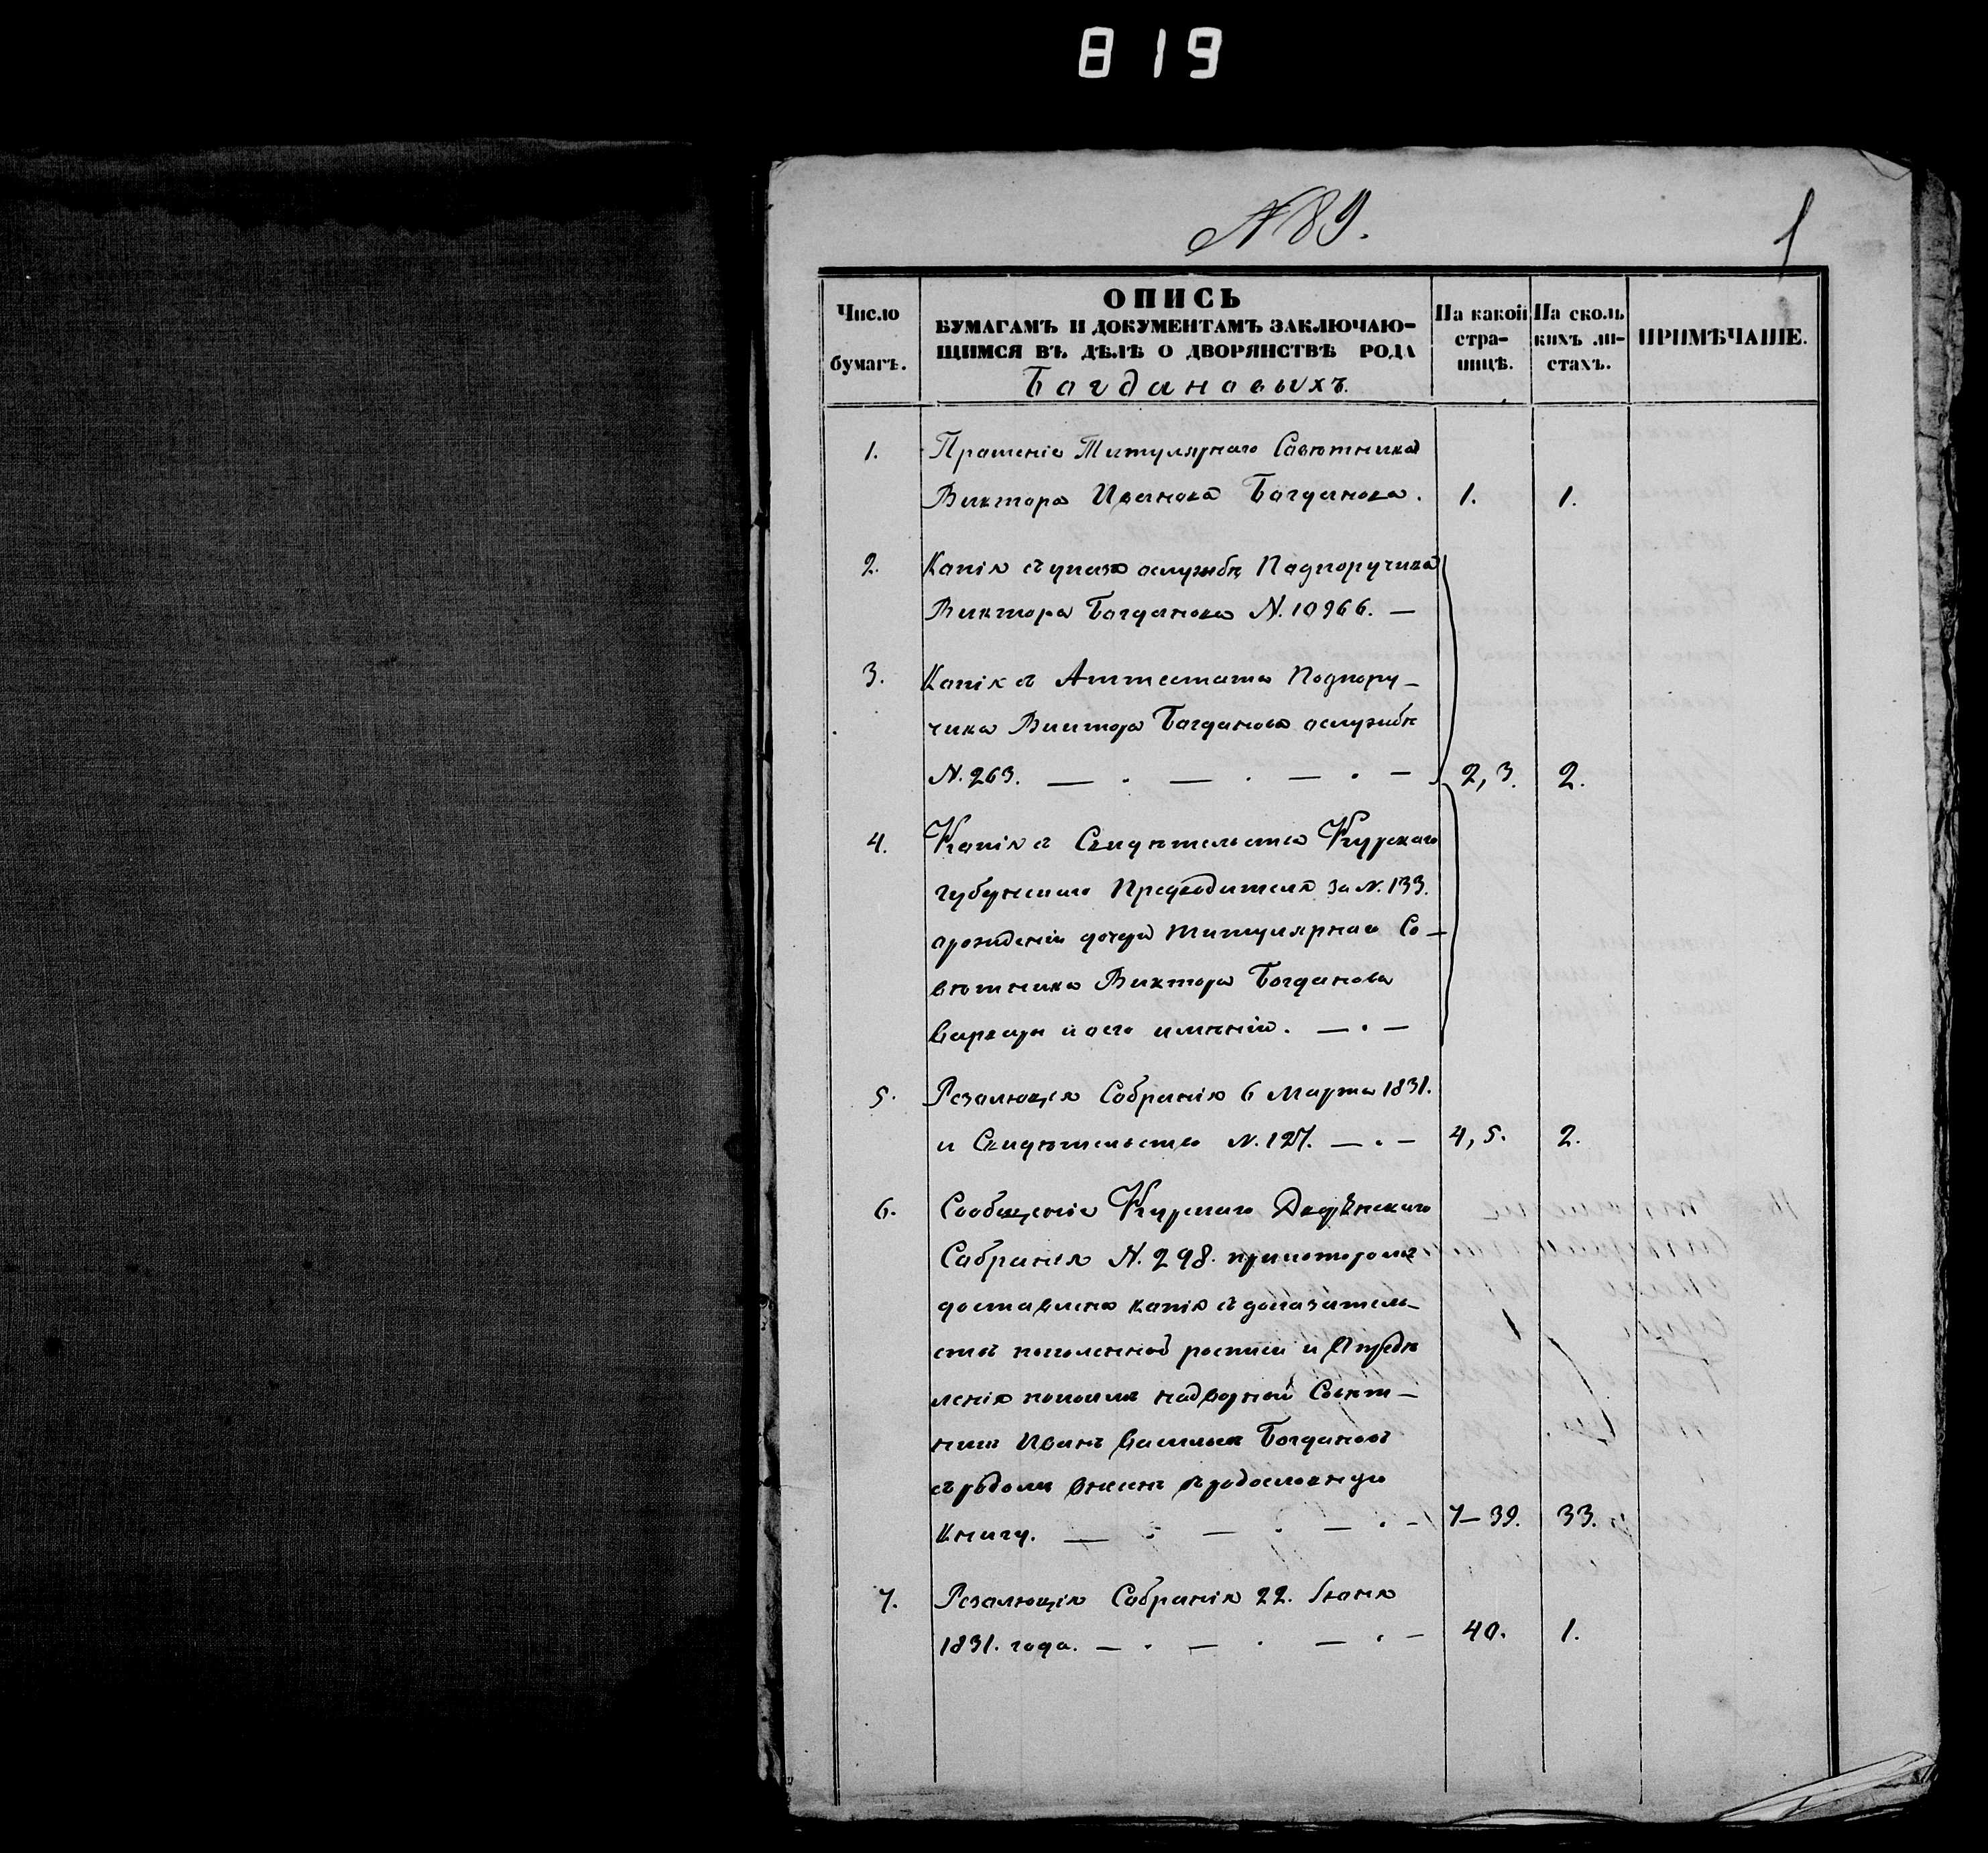 819
N 89.
1
Число бумагъ.
ОПИСЬ
БУМАГАМЪ И ДОКУМЕНТАМЪ ЗАКЛЮЧАЮ-
ЩИМСЯ ВЪ ДѢЛѢ О ДВОРЯНСТВѢ РОДА
Богдановыхъ.
На какой стра-
ницѣ.
На сколь
кихъ ли-
стахъ.
ПРИМѢЧАНІЕ.
1. Прошеніе Титулярнаго Совѣтника
Виктора Иванова Богданова. 1. 1.
2. Копія съ указа ослужбѣ Подпоручика
Виктора Богданова N. 10966. —
3. Копія съ Аттестата Подпору-
чика Виктора Богданова ослужбѣ
N. 263. — . — . — . — 2, 3. 2.
4. Копія съ Свидѣтельства Курскаго
Губернскаго Предводителя за N. 133.
орожденіи дочери Титулярнаго Со-
вѣтника Виктора Богданова
Варвары и оего имѣніи. — . —
5. Резолюція Собранія 6 Марта 1831.
и Свидѣтельство N. 127. — . — 4, 5. 2.
6. Сообщеніе Курскаго Дворянскаго
Собранія N. 298. прикоторомъ
доставлена копія съ доказатель-
ствъ поколенной росписи и Опредѣ
ленія покоимъ надворной Совѣт-
никъ Иванъ Васильевъ Богдановъ
съ родомъ внесенъ въ родословную
Книгу. — . — . — . — 7–39. 33.
7. Резолюція Собранія 22. Іюня
1831. года. — . — . — . — 40. 1.